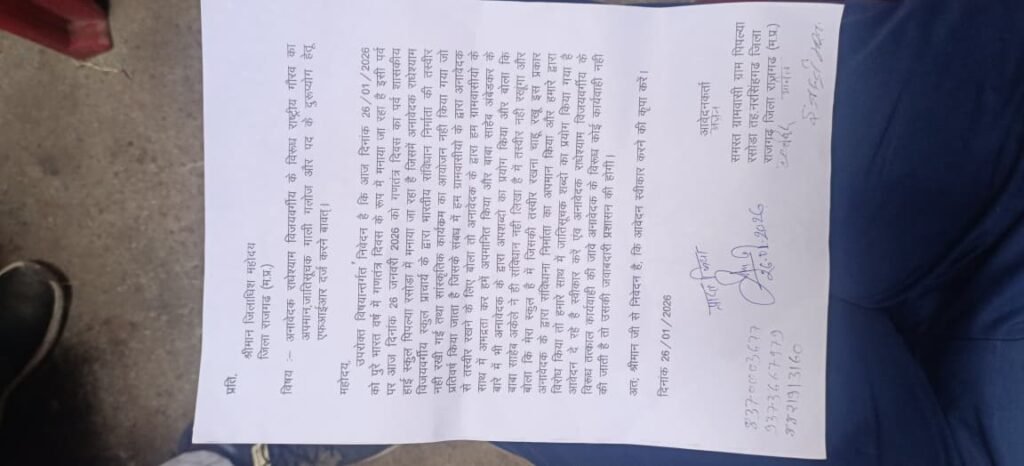 प्रति,
श्रीमान जिलाधिश महोदय
जिला राजगढ (म.प्र.)
विषय :– अनावेदक राधेश्याम विजयवर्गीय के विरूध राष्ट्रीय गौरव का
अपमान,जातिसूचक गाली गलोज और पद के दुरूप्योग हेतू
एफआईआर दर्ज करने बावत्।
महोदय,
उपरोक्त विषयान्तर्गत निवेदन है कि आज दिनांक 26/01/2026
को पुरे भारत वर्ष में गणतंत्र दिवस के रूप में मनाया जा रहा है इसी पर्व
पर आज दिनांक 26 जनवरी 2026 को गणतंत्र दिवस का पर्व शासकीय
हाई स्कुल पिपल्या रसोंडा में मनाया जा रहा है जिसमें अनावेदक राधेश्याम
विजयवर्गीय स्कुल प्राचार्य के द्वारा भारतीय संविधान निर्माता की तस्वीर
नही रखी गई तथा सांस्कृतिक कार्यकम का आयोजन नही किया गया जो
प्रतिवर्ष किया जाता है जिसके संबध में हम ग्रामवासीयो के द्वारा अनावेदक
से तस्वीर रखने के लिए बोला तो अनावेदक के द्वारा हम ग्रामवासीयो के
साथ में अमद्रता कर हमें अपमानित किया और बाबा साहेब अंबेडकर के
बारे में भी अनावेदक के द्वारा अपशब्दो का प्रयोग किया और बोला कि
बाबा साहेब अकेले ने ही संविधान नही लिखा है में तस्वीर नही रखूगा और
बोला कि मेरा स्कुल है में जिसकी तस्वीर रखना चाहू रखू, इस प्रकार
अनावेदक के द्वारा संविधाना निर्माता का अपमान किया और हमारे द्वारा
विरोध किया तो हमारे साथ में जातिसूचक शब्दो का प्रयोग किया गया है
आवेदन दे रहे है स्वीकार करे एंव अनावेदक राधेश्याम विजयवर्गीय के
विरूध तत्काल कार्यवाही की जावे अनावेदक के विरूध कोई कार्यवाही नही
की जाती है तो उसकी जवाबदारी प्रशासन की होगी।
अतः श्रीमान जी से निवेदन है, कि आवेदन स्वीकार करने की कृपा करें।
दिनांक 26/01/2026
आवेदनकर्ता
समस्त ग्रामवासी ग्राम पिपल्या
रसोडा तह.नरसिंहगढ जिला
राजगढ जिला राजगढ (म.प्र.)
प्राप्त किया
26.01.2026